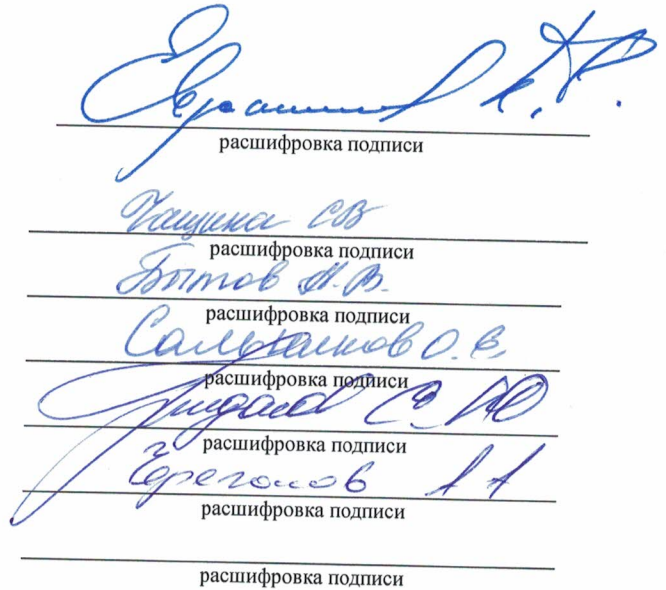 расшифровка подписи
Чащина СВ
расшифровка подписи
Бытов Н.В.
расшифровка подписи
О.В.
расшифровка подписи
С.Ю
расшифровка подписи
А А
расшифровка подписи
расшифровка подписи